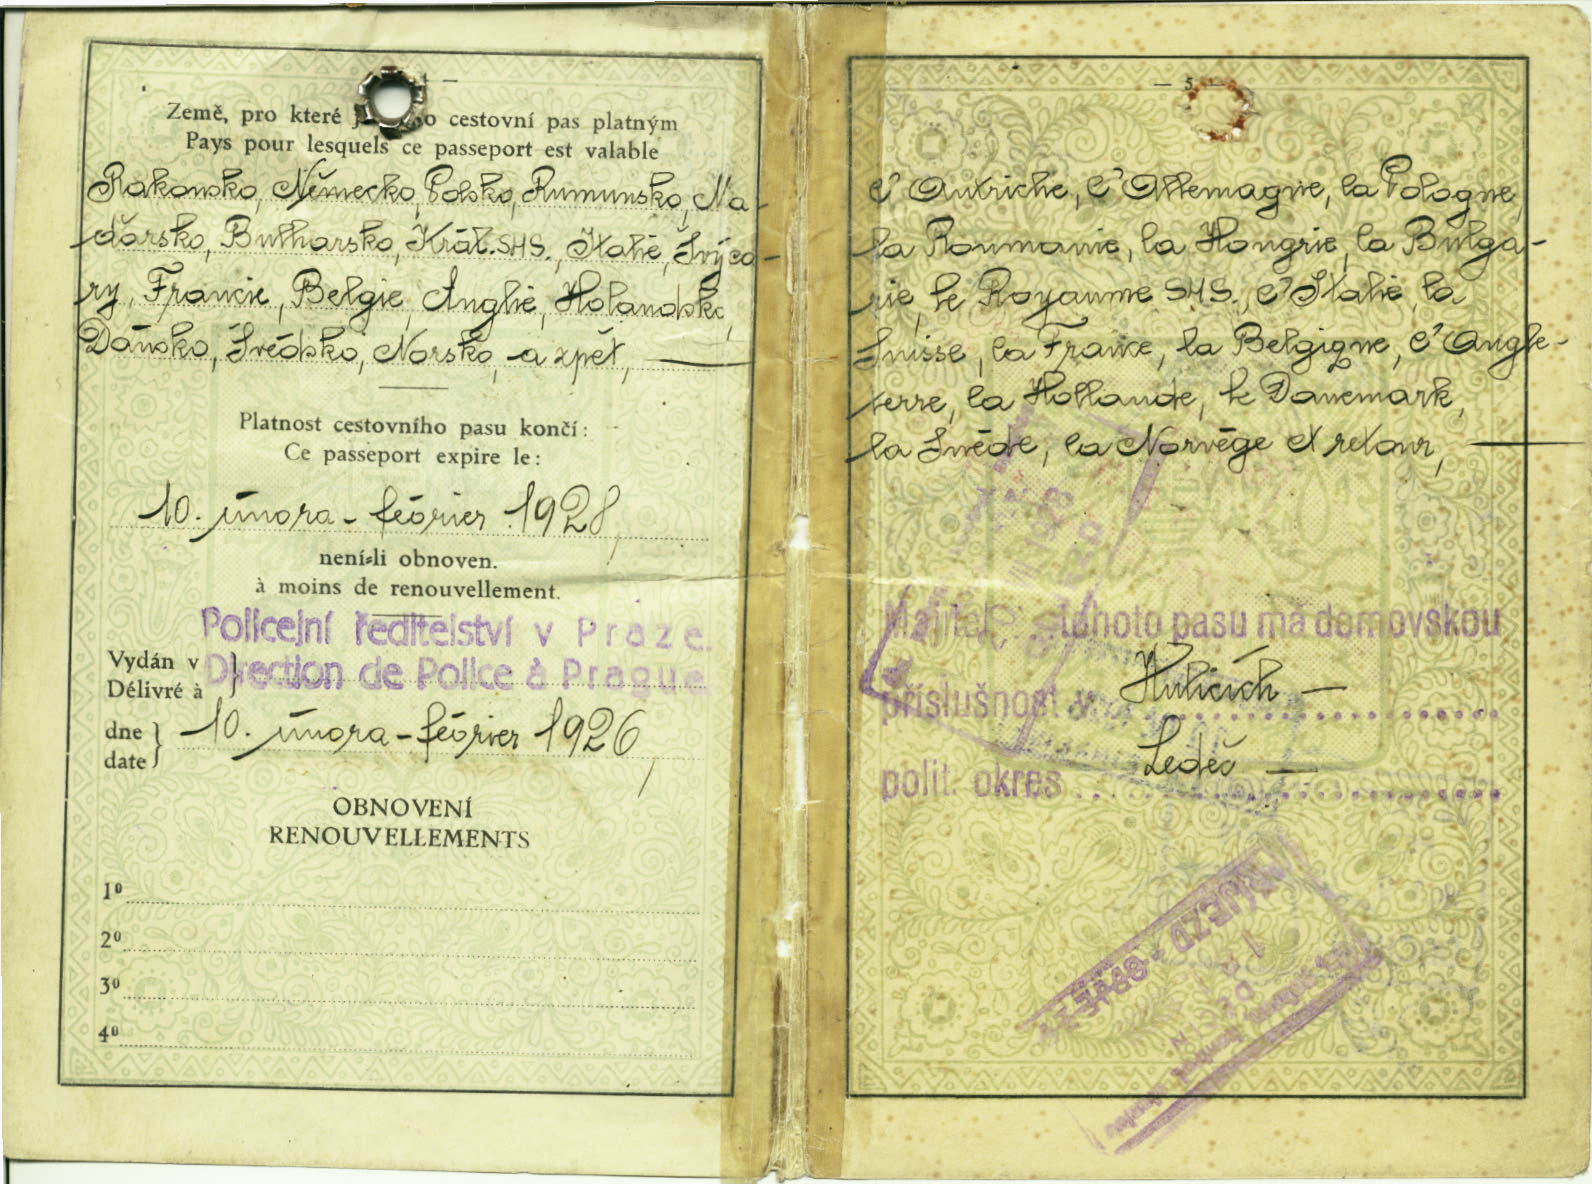 Země, pro které cestovní pas platným
Pays pour lesquels ce passeport est valable
Rakousko, Německo, Polsko, Rumunsko, Ma-
ďarsko, Bulharsko, Král. SHS., Italie, Švýca-
ry, Francie, Belgie, Anglie, Holandsko,
Dánsko, Švédsko, Norsko, a zpět,
Platnost cestovního pasu končí:
Ce passeport expire le:
10. února - février 1928,
není-li obnoven.
à moins de renouvellement.
Policejní ředitelství v Praze.
Vydán v
Direction de Police à Prague
Délivré à
dne
10. února - février 1926,
date
OBNOVENÍ
RENOUVELLEMENTS
1º
2º
3º
4º
— 5
l'Autriche, l'Allemagne, la Pologne,
la Roumanie, la Hongrie, la Bulga-
rie, le Royaume SHS., l'Italie, la
Suisse, la France, la Belgique, l'Angle-
terre, la Hollande, le Danemark,
la Suède, la Norvège et retour,
Majitel tohoto pasu má domovskou
příslušnost v Hulicích —
polit. okres Ledeč —